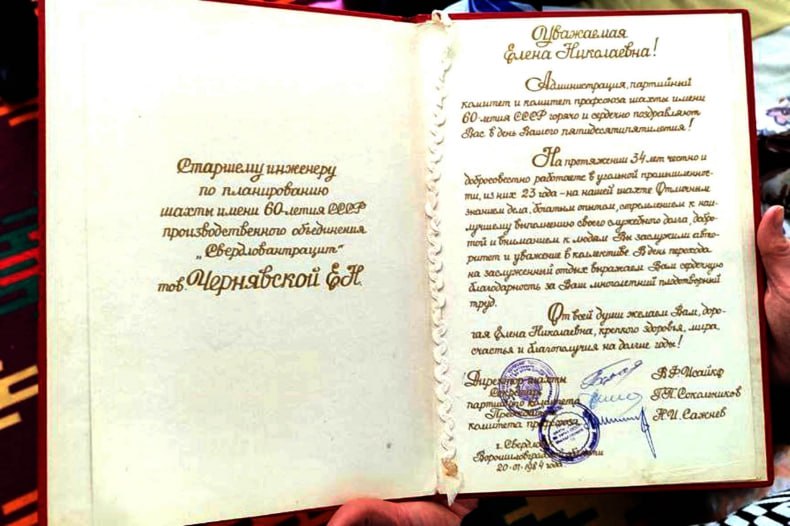 Старшему инженеру
по планированию
шахты имени 60-летия СССР
производственного объединения
„Свердловантрацит"
тов. Чернявской Е.Н.
Уважаемая
Елена Николаевна!
Администрация, партийный
комитет и комитет профсоюза шахты имени
60-летия СССР горячо и сердечно поздравляют
Вас в день Вашего пятидесятипятилетия!
На протяжении 34 лет честно и
добросовестно работаете в угольной промышленнос-
ти, из них 23 года - на нашей шахте. Отличным
знанием дела, богатым опытом, стремлением к наи-
лучшему выполнению своего служебного долга, добро-
той и вниманием к людям Вы заслужили авто-
ритет и уважение в коллективе. В день перехода
на заслуженный отдых выражаем Вам сердечную
благодарность за Ваш многолетний плодотворный
труд.
От всей души желаем Вам, доро-
гая Елена Николаевна, крепкого здоровья, мира,
счастья и благополучия на долгие годы!
Директор шахты В.Ф. Исайко
Секретарь
партийного комитета Г.П. Сокольников
Председатель
комитета профсоюза Н.И. Сажнев
г. Свердловск
Ворошиловградской области
20-01-1984 года